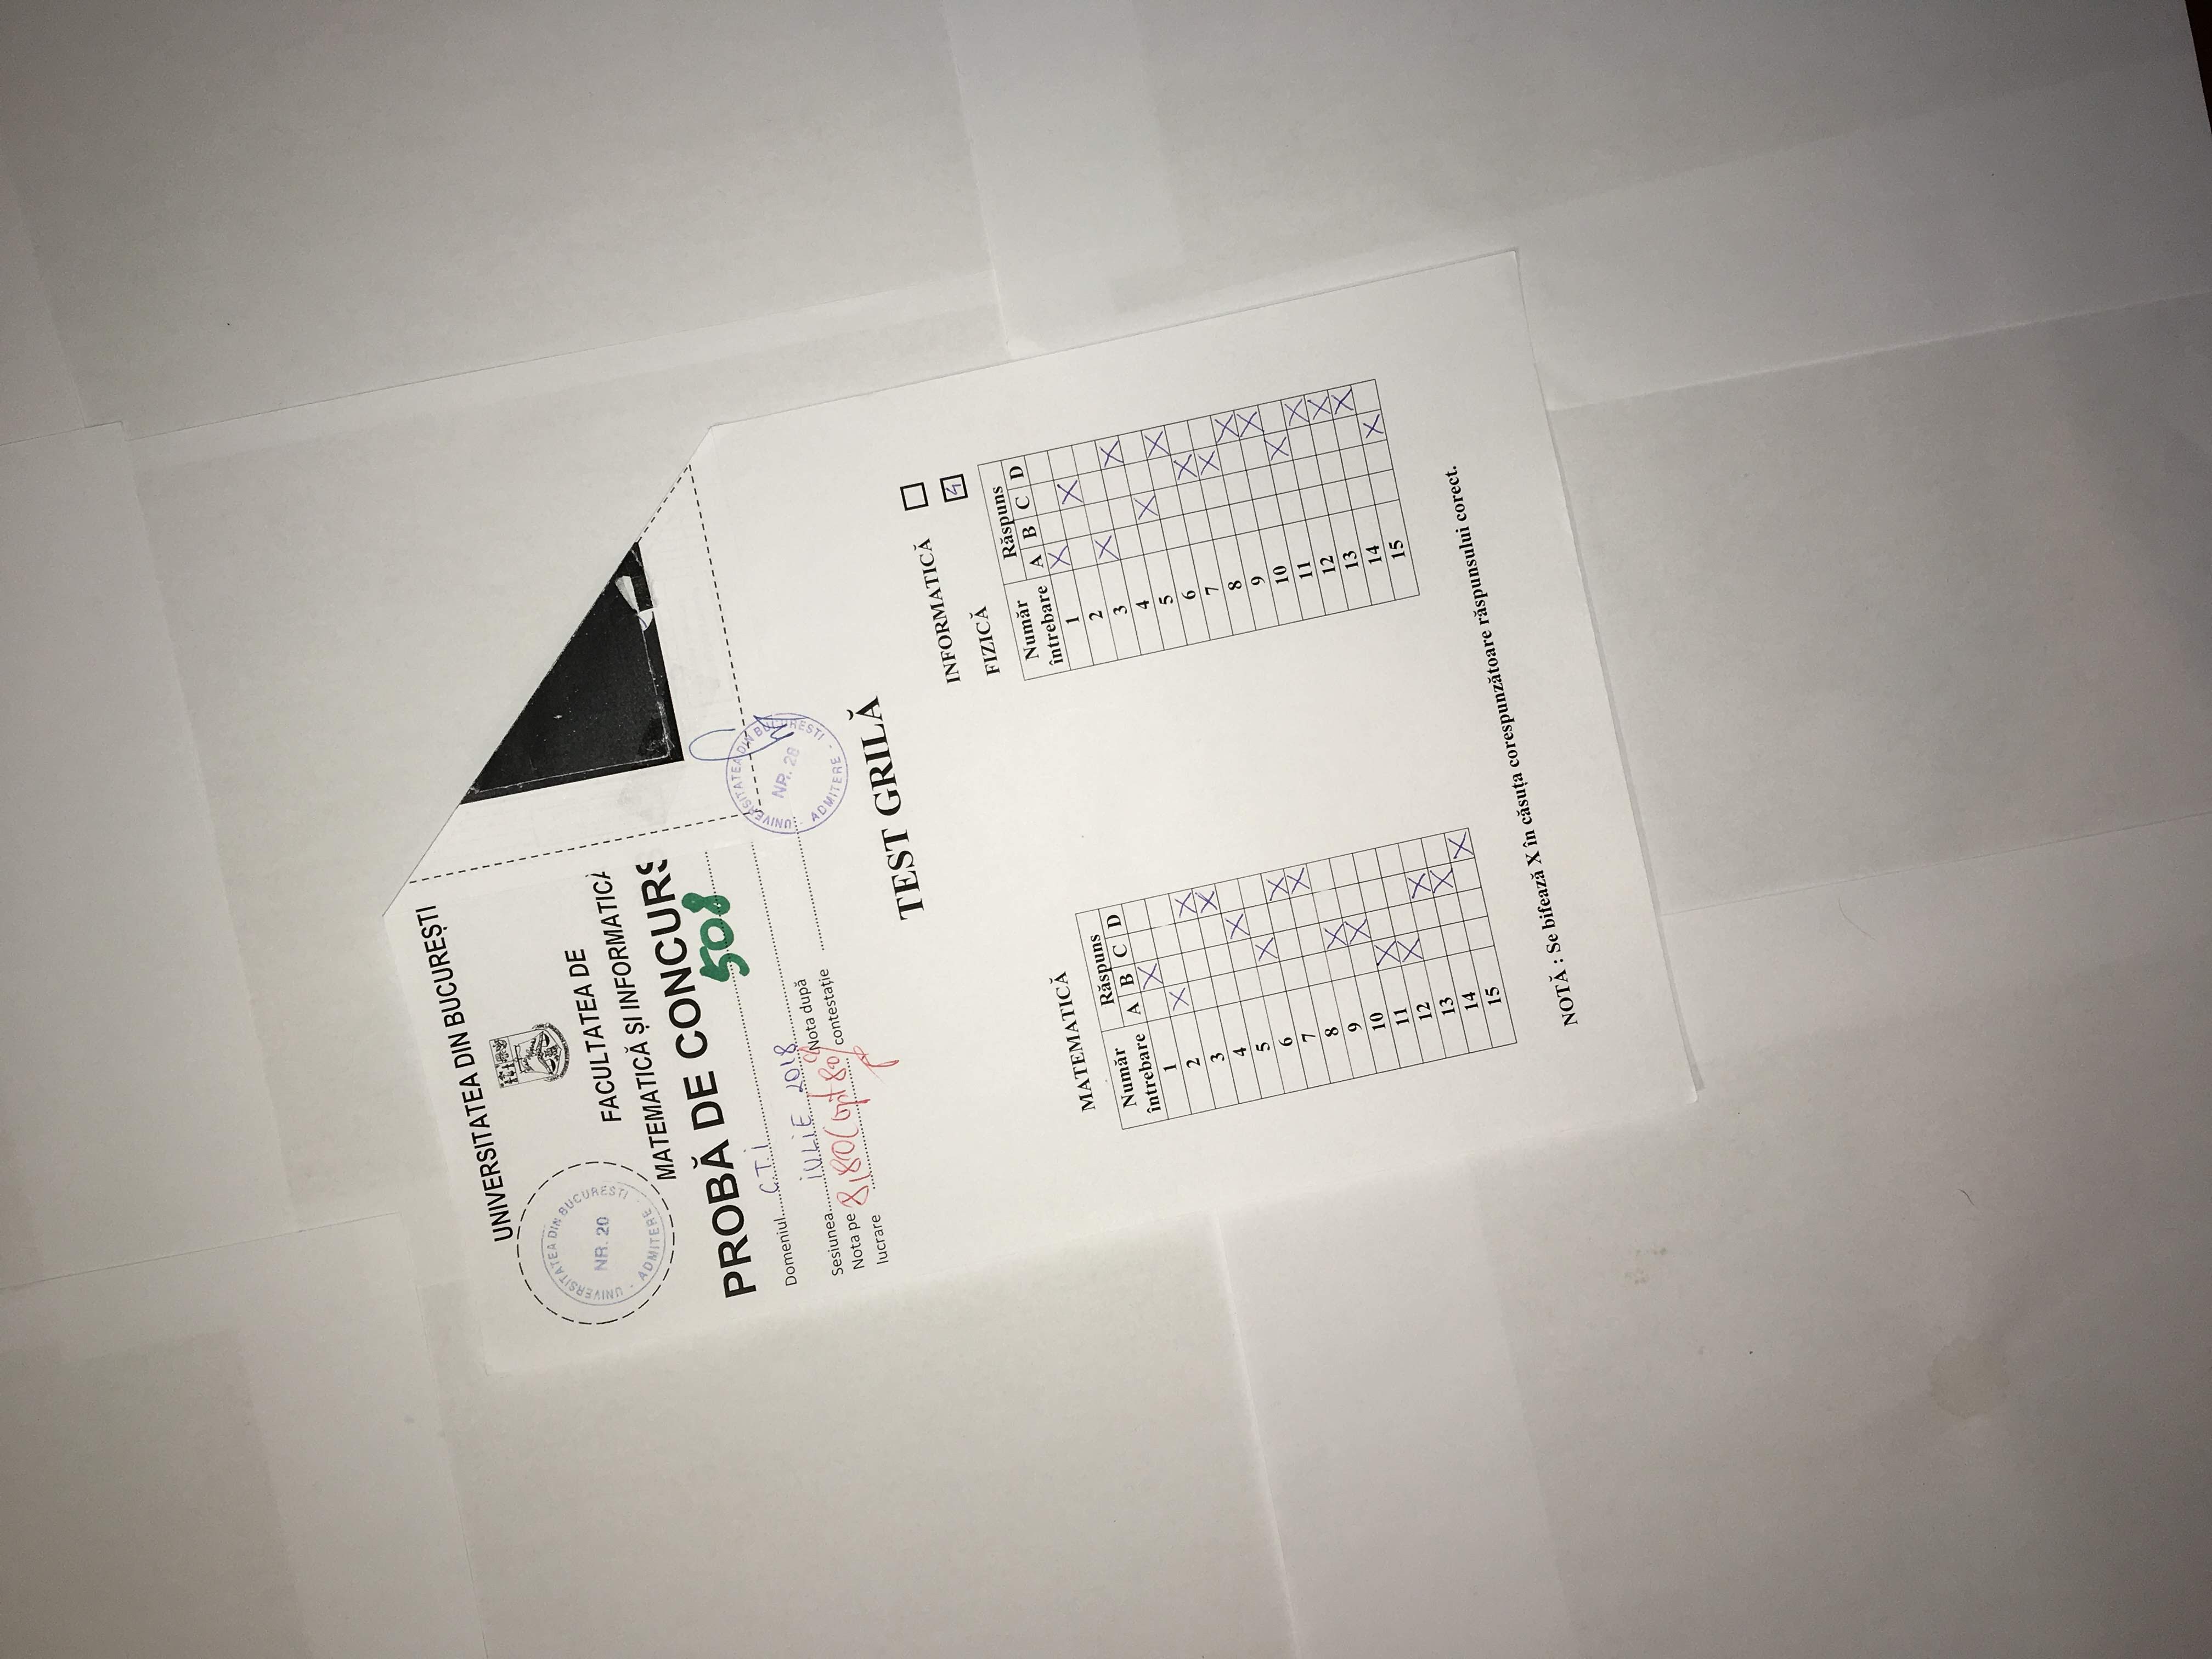 UNIVERSITATEA DIN BUCUREȘTI
UNIVERSITATEA DIN BUCUREȘTI
NR. 20
ADMITERE
FACULTATEA DE
MATEMATICĂ ȘI INFORMATICĂ
PROBĂ DE CONCURS
508
Domeniul C.T.I
Sesiunea IULIE 2018
Nota pe lucrare 8,80 (opt 80%
Nota după contestație
UNIVERSITATEA DIN BUCUREȘTI
NR. 28
ADMITERE
TEST GRILĂ
INFORMATICĂ
FIZICĂ 4
MATEMATICĂ
Număr întrebare Răspuns
A B C D
1 X
2 X
3 X
4 X
5 X
6 X
7 X
8 X
9 X
10 X
11 X
12 X
13 X
14 X
15 X
Număr întrebare Răspuns
A B C D
1 X
2 X
3 X
4 X
5 X
6 X
7 X
8 X
9 X
10 X
11 X
12 X
13 X
14 X
15 X
NOTĂ : Se bifează X în căsuța corespunzătoare răspunsului corect.